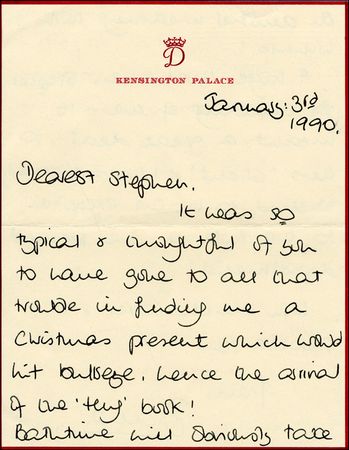 D
KENSINGTON PALACE
January: 3rd
1990.
Dearest Stephen,
It was so
typical & thoughtful of you
to have gone to all that
trouble in finding me a
Christmas present which would
hit bullseye, hence the arrival
of the book!
Bathtime will obviously take